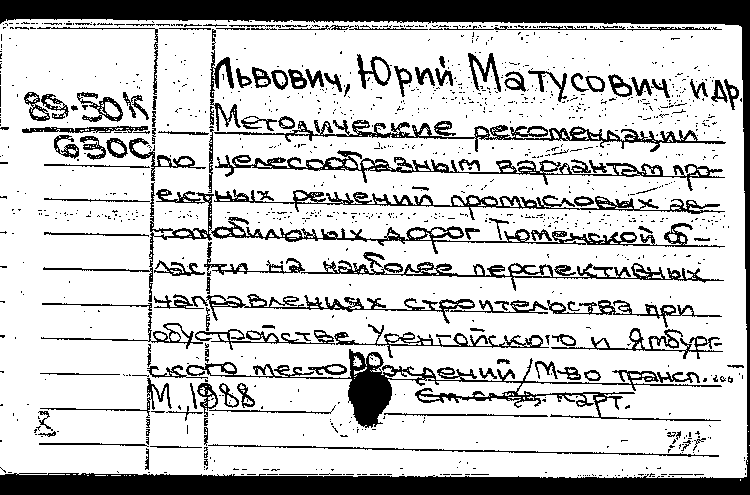 Львович, Юрий Матусович и др.
89-50К
6300
Методические рекомендации
по целесообразным вариантам про-
ектных решений промысловых ав-
томобильных дорог Тюменской об-
ласти на наиболее перспективных
направлениях строительства при
обустройстве Уренгойского и Ямбург-
ского месторождений / М-во трансп. ...
М., 1988. См. след. карт.
8